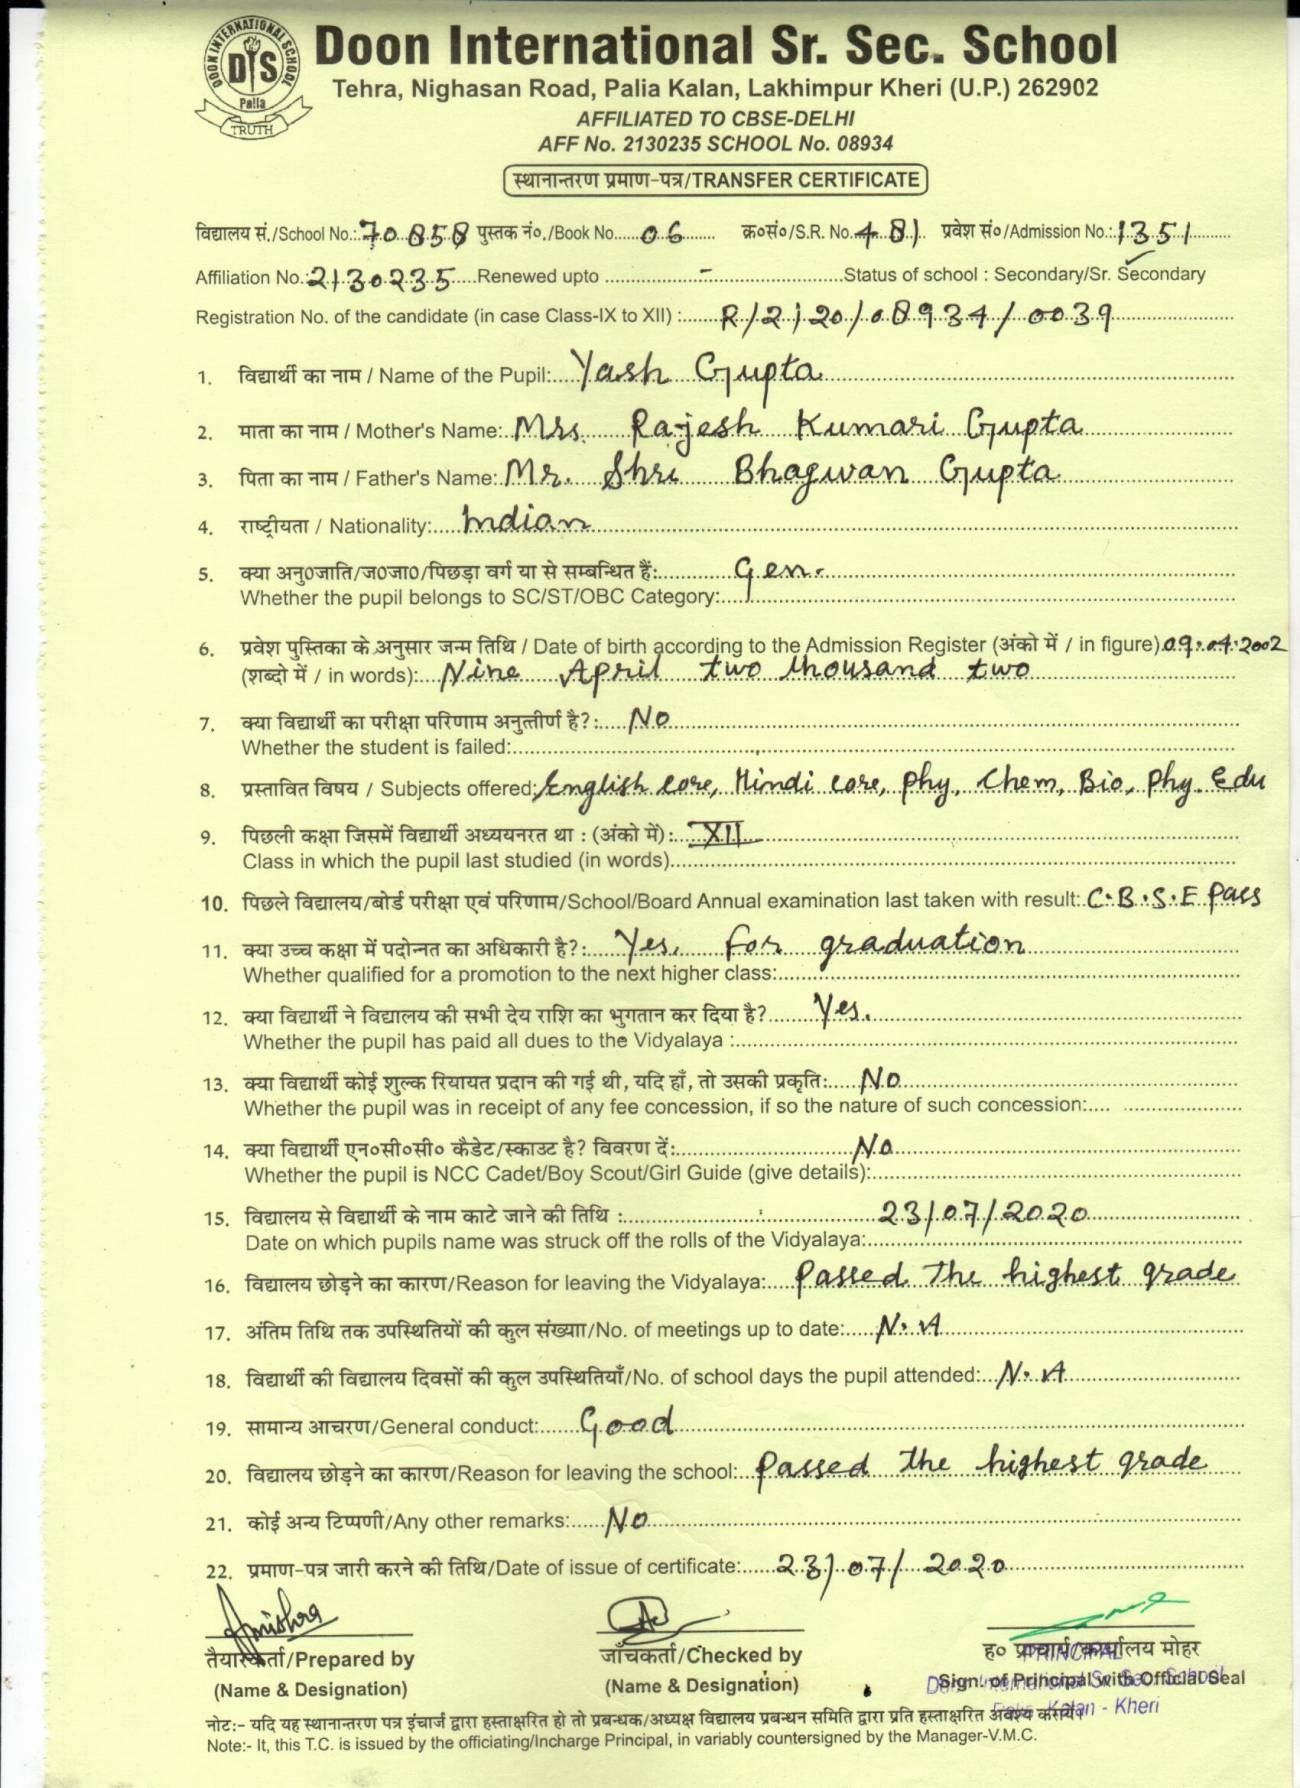 DOON INTERNATIONAL SCHOOL
DIS
Palia
TRUTH
Doon International Sr. Sec. School
Tehra, Nighasan Road, Palia Kalan, Lakhimpur Kheri (U.P.) 262902
AFFILIATED TO CBSE-DELHI
AFF No. 2130235 SCHOOL No. 08934
स्थानान्तरण प्रमाण-पत्र/TRANSFER CERTIFICATE
विद्यालय सं./School No.: 70858 पुस्तक नं०./Book No. 06 क्र०सं०/S.R. No. 481 प्रवेश सं०/Admission No.: 1351
Affiliation No.: 2130235 Renewed upto - Status of school : Secondary/Sr. Secondary
Registration No. of the candidate (in case Class-IX to XII) : R/2120/08934/0039
1. विद्यार्थी का नाम / Name of the Pupil: Yash Gupta
2. माता का नाम / Mother's Name: Mrs. Rajesh Kumari Gupta
3. पिता का नाम / Father's Name: Mr. Shri Bhagwan Gupta
4. राष्ट्रीयता / Nationality: Indian
5. क्या अनु0जाति/ज0जा0/पिछड़ा वर्ग या से सम्बन्धित हैं: Gen.
Whether the pupil belongs to SC/ST/OBC Category:
6. प्रवेश पुस्तिका के अनुसार जन्म तिथि / Date of birth according to the Admission Register (अंको में / in figure) 09.04.2002
(शब्दो में / in words): Nine April two thousand two
7. क्या विद्यार्थी का परीक्षा परिणाम अनुत्तीर्ण है?: No
Whether the student is failed:
8. प्रस्तावित विषय / Subjects offered: English core, Hindi core, Phy, Chem, Bio, Phy. Edu
9. पिछली कक्षा जिसमें विद्यार्थी अध्ययनरत था : (अंको में) : XII
Class in which the pupil last studied (in words)
10. पिछले विद्यालय/बोर्ड परीक्षा एवं परिणाम/School/Board Annual examination last taken with result: C.B.S.E Pass
11. क्या उच्च कक्षा में पदोन्नत का अधिकारी है?: Yes, for graduation
Whether qualified for a promotion to the next higher class:
12. क्या विद्यार्थी ने विद्यालय की सभी देय राशि का भुगतान कर दिया है? Yes.
Whether the pupil has paid all dues to the Vidyalaya :
13. क्या विद्यार्थी कोई शुल्क रियायत प्रदान की गई थी, यदि हाँ, तो उसकी प्रकृति: No
Whether the pupil was in receipt of any fee concession, if so the nature of such concession:
14. क्या विद्यार्थी एन०सी०सी० कैडेट/स्काउट है? विवरण दें: No
Whether the pupil is NCC Cadet/Boy Scout/Girl Guide (give details):
15. विद्यालय से विद्यार्थी के नाम काटे जाने की तिथि : 23/07/2020
Date on which pupils name was struck off the rolls of the Vidyalaya:
16. विद्यालय छोड़ने का कारण/Reason for leaving the Vidyalaya: Passed the highest grade
17. अंतिम तिथि तक उपस्थितियों की कुल संख्याा/No. of meetings up to date: N.A
18. विद्यार्थी की विद्यालय दिवसों की कुल उपस्थितियाँ/No. of school days the pupil attended: N.A
19. सामान्य आचरण/General conduct: Good
20. विद्यालय छोड़ने का कारण/Reason for leaving the school: Passed the highest grade
21. कोई अन्य टिप्पणी/Any other remarks: No
22. प्रमाण-पत्र जारी करने की तिथि/Date of issue of certificate: 23/07/2020
तैयारकर्ता/Prepared by जाँचकर्ता/Checked by ह० प्राचार्य/कार्यालय मोहर
(Name & Designation) (Name & Designation) Sign. of Principal with Official Seal
PRINCIPAL
Kalan - Kheri
नोट:- यदि यह स्थानान्तरण पत्र इंचार्ज द्वारा हस्ताक्षरित हो तो प्रबन्धक/अध्यक्ष विद्यालय प्रबन्धन समिति द्वारा प्रति हस्ताक्षरित अवश्य करायें।
Note:- It, this T.C. is issued by the officiating/Incharge Principal, in variably countersigned by the Manager-V.M.C.